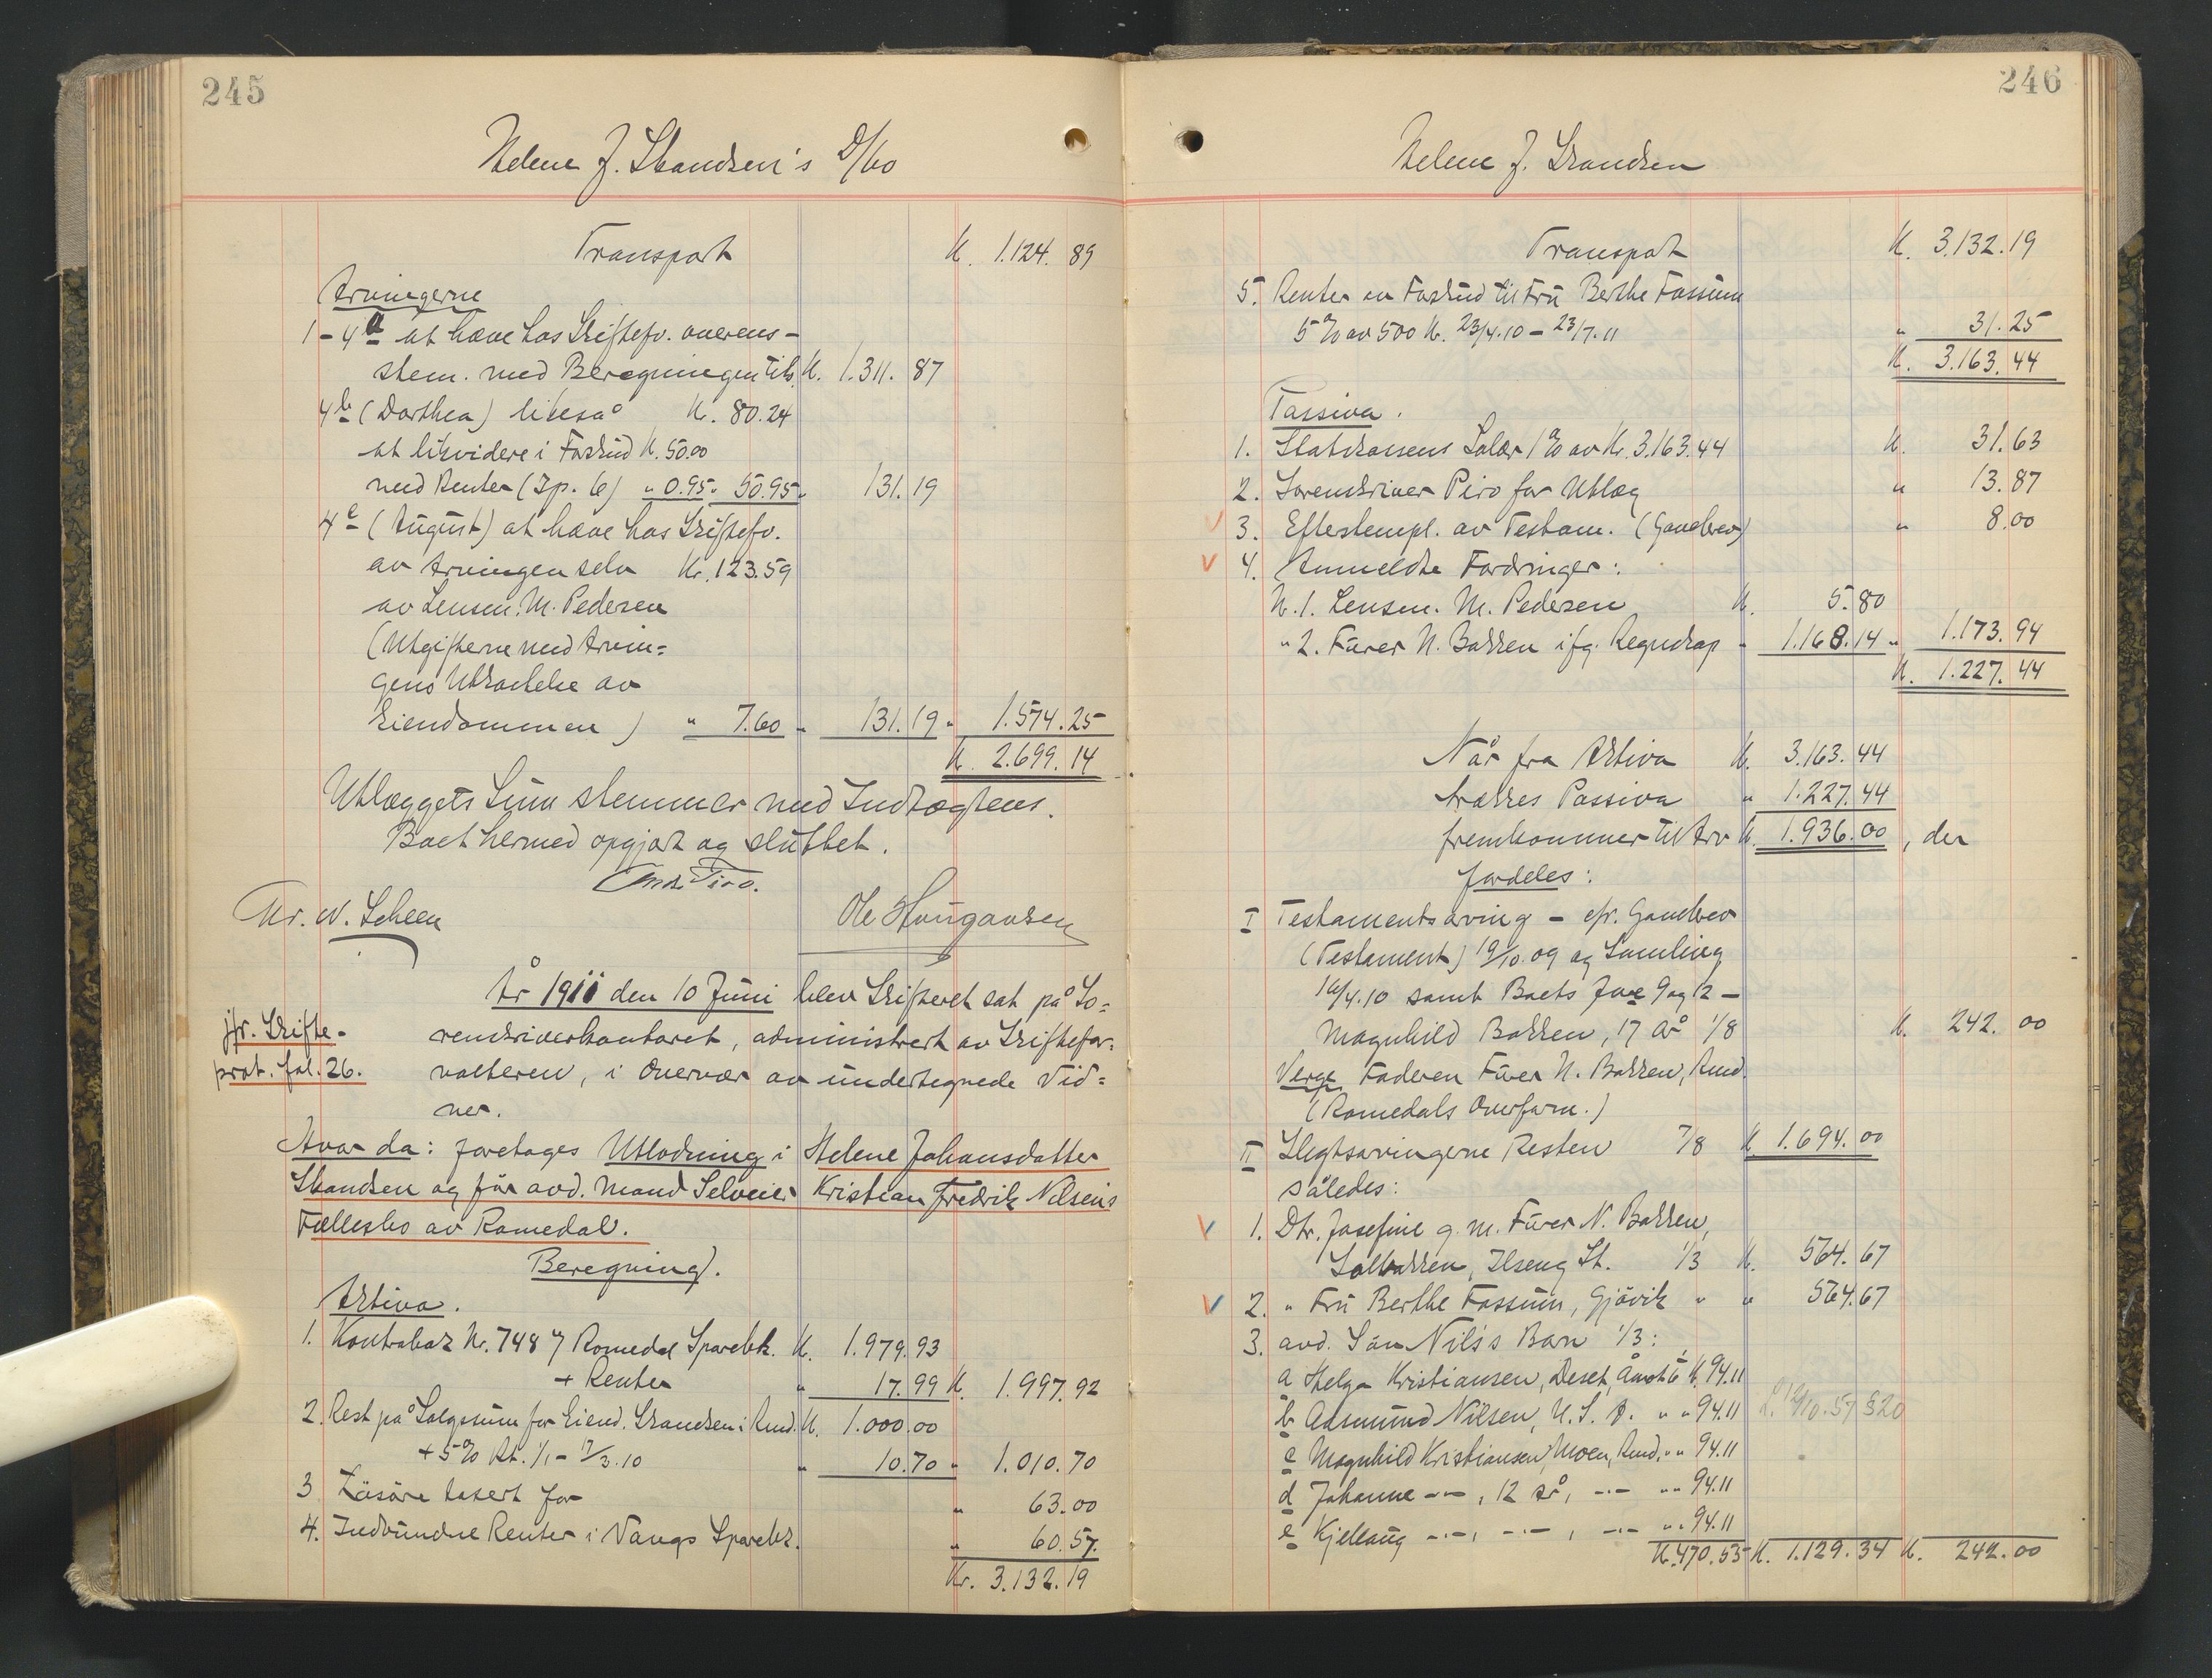 245
Helene J. Skandsen's D/bo
Transport K. 1.124. 89
Arvingerne
1-4a at hæve hos Skiftefv. overens-
stem. med Beregningen tils. K. 1.311. 87
4b (Dorthea) likeså K. 80.24
at likvidere i Forskud K. 50.00
med Renter (Jp. 6) " 0.95 " 50.95 " 131.19
4c (August) at hæve hos Skiftefv.
av Arvingen selv Kr. 123.59
av Lensm. M. Pedersen
(Utgifterne med Arvin=
gens Utkastelse av
Eiendommen) " 7.60 " 131.19 " 1.574.25
K. 2.699.14
Utlæggets Sum stemmer med Indtægtens.
Boet hermed opgjort og sluttet.
And. Piro.
Chr. W. Scheen Ole Haugaasen
År 1911 den 10 Juni blev Skifteret sat på So=
jfr. Skifte-
prot. fol. 26.
renskriverkontoret, administrert av Skiftefor=
valteren, i Overvær av undertegnede Vid=
ner.
Hvor da: foretages Utlodning i Helene Johansdatter
Skandsen og før avd. Mand Selveier Kristian Fredrik Nilsen's
Fællesbo av Romedal.
Beregning.
Aktiva.
1. Kontrabok Nr. 748 i Romedal Sparebk. K. 1.979.93
+ Renter " 17.99 K. 1.997.92
2. Rest på Salgssum for Eiend. Skandsen i Rmd. K. 1.000.00
+ 5% Rt. 1/1 - 17/3.10 " 10.70 " 1.010.70
3 Løsøre taxert for " 63.00
4. Indvundne Renter i Vangs Sparebk. " 60.57.
Kr. 3.132.19
246
Helene J. Skandsen
Transport K. 3.132.19
5. Renter av Forskud til Fru Berthe Fossum
5% av 500 K. 23/4.10 - 23/7.11 " 31.25
K. 3.163.44
Passiva.
1. Statskassens Salær 1% av Kr. 3.163.44 K. 31.63
2. Sorenskriver Piro for Utlæg " 13.87
3. Efterstempl. av Testam. (Gavebrev) " 8.00
4. Anmeldte Fordringer:
N. 1. Lensm. M. Pedersen K. 5.80
" 2. Furer N. Bakken ifg. Regnskap " 1.168.14 " 1.173.94
K. 1.227.44
Når fra Aktiva K. 3.163.44
trækkes Passiva " 1.227.44
fremkommer til Arv K. 1.936.00, der
fordeles:
I Testamentsarving - cfr. Gavebrev
(Testament) 19/10.09 og Samling
16/4.10 samt Boets Jno 9 og 12 -
Magnhild Bakken, 17 år 1/8 K. 242.00
Verge Faderen Furer N. Bakken, Rmd.
(Romedals Overform.)
II Slegtsarvingerne Resten 7/8 K 1.694.00
således:
1. Dtr. Josefine g. m. Furer N. Bakken,
Solbakken, Ilseng St. 1/3 K. 564.67
2. " Fru Berthe Fossum, Gjövik " " 564.67
3. avd. Sön Nils's Barn 1/3:
a Helga Kristiansen, Deset, Åmot 1/5 K. 94.11
b Aasmund Nilsen, U. S. A. " " 94.11
c Magnhild Kristiansen, Moen, Rmd. " " 94.11
d Johanne -"-, 12 år, -"- " " 94.11
e Kjellaug -"-, -"-, -"- " " 94.11
K. 470.55 K. 1.129.34 K. 242.00